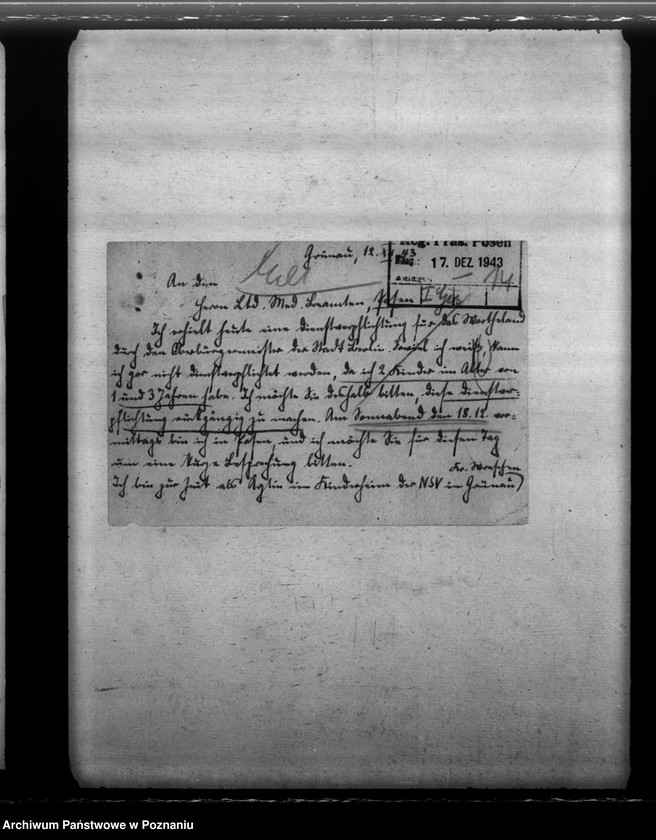 Reg. Präs. Posen
17. DEZ. 1943
Grünau, 12. 43
Eilt
An den
Herrn Ltd. Med. Beamten, Posen
Ich erhielt heute eine Dienstverpflichtung für das Wartheland
durch den Oberbürgermeister der Stadt Berlin. Soviel ich weiß, kann
ich gar nicht dienstverpflichtet werden, da ich 2 Kinder im Alter von
1 und 3 Jahren habe. Ich möchte Sie deshalb bitten, diese Dienstver-
pflichtung rückgängig zu machen. Am Sonnabend den 18.12. vor-
mittags bin ich in Posen, und ich möchte Sie für diesen Tag
um eine kurze Besprechung bitten.
Kr. Wreschen
Ich bin zur Zeit als Ärztin im Kinderheim der NSV in Grünau)
Archiwum Państwowe w Poznaniu